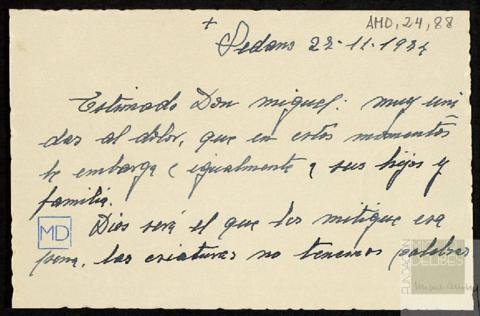 AMD, 24, 88
+
Sedano 22-11-1974
Estimado Don Miguel: muy uni
das al dolor, que en estos momentos
le embarga e igualmente a sus hijos y
familia.
MD
Dios será el que les mitigue esa
pena, las criaturas no tenemos palabras
FUNDACIÓN
DELIBES